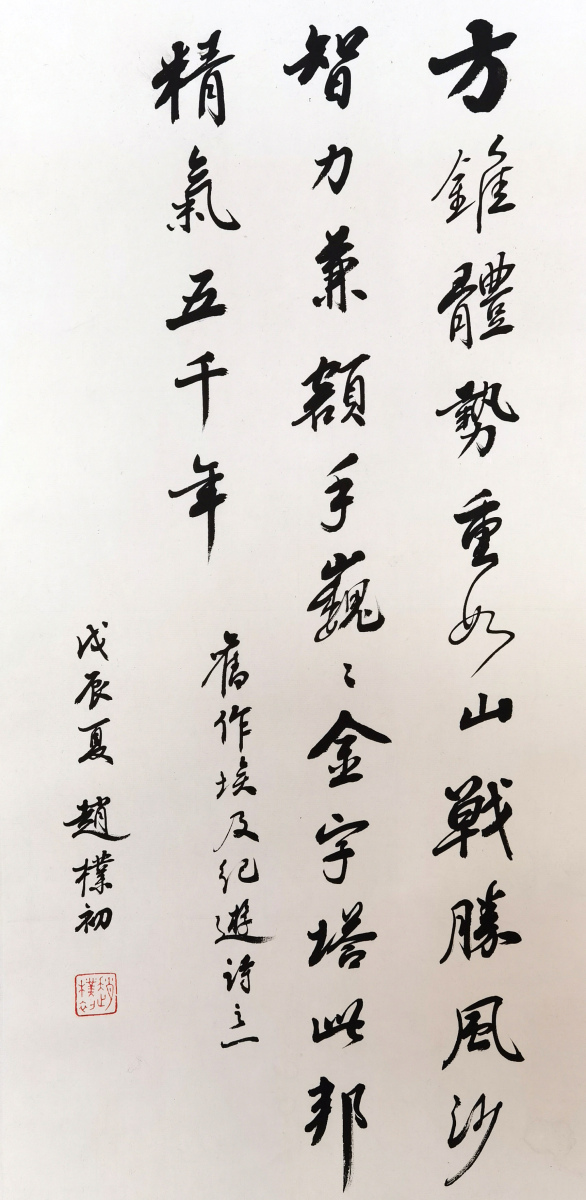 方錐體勢重如山戰勝風沙
智力兼額手巍〻金字塔此邦
精氣五千年
舊作埃及紀遊詩之一
戊辰夏 趙樸初
趙樸初